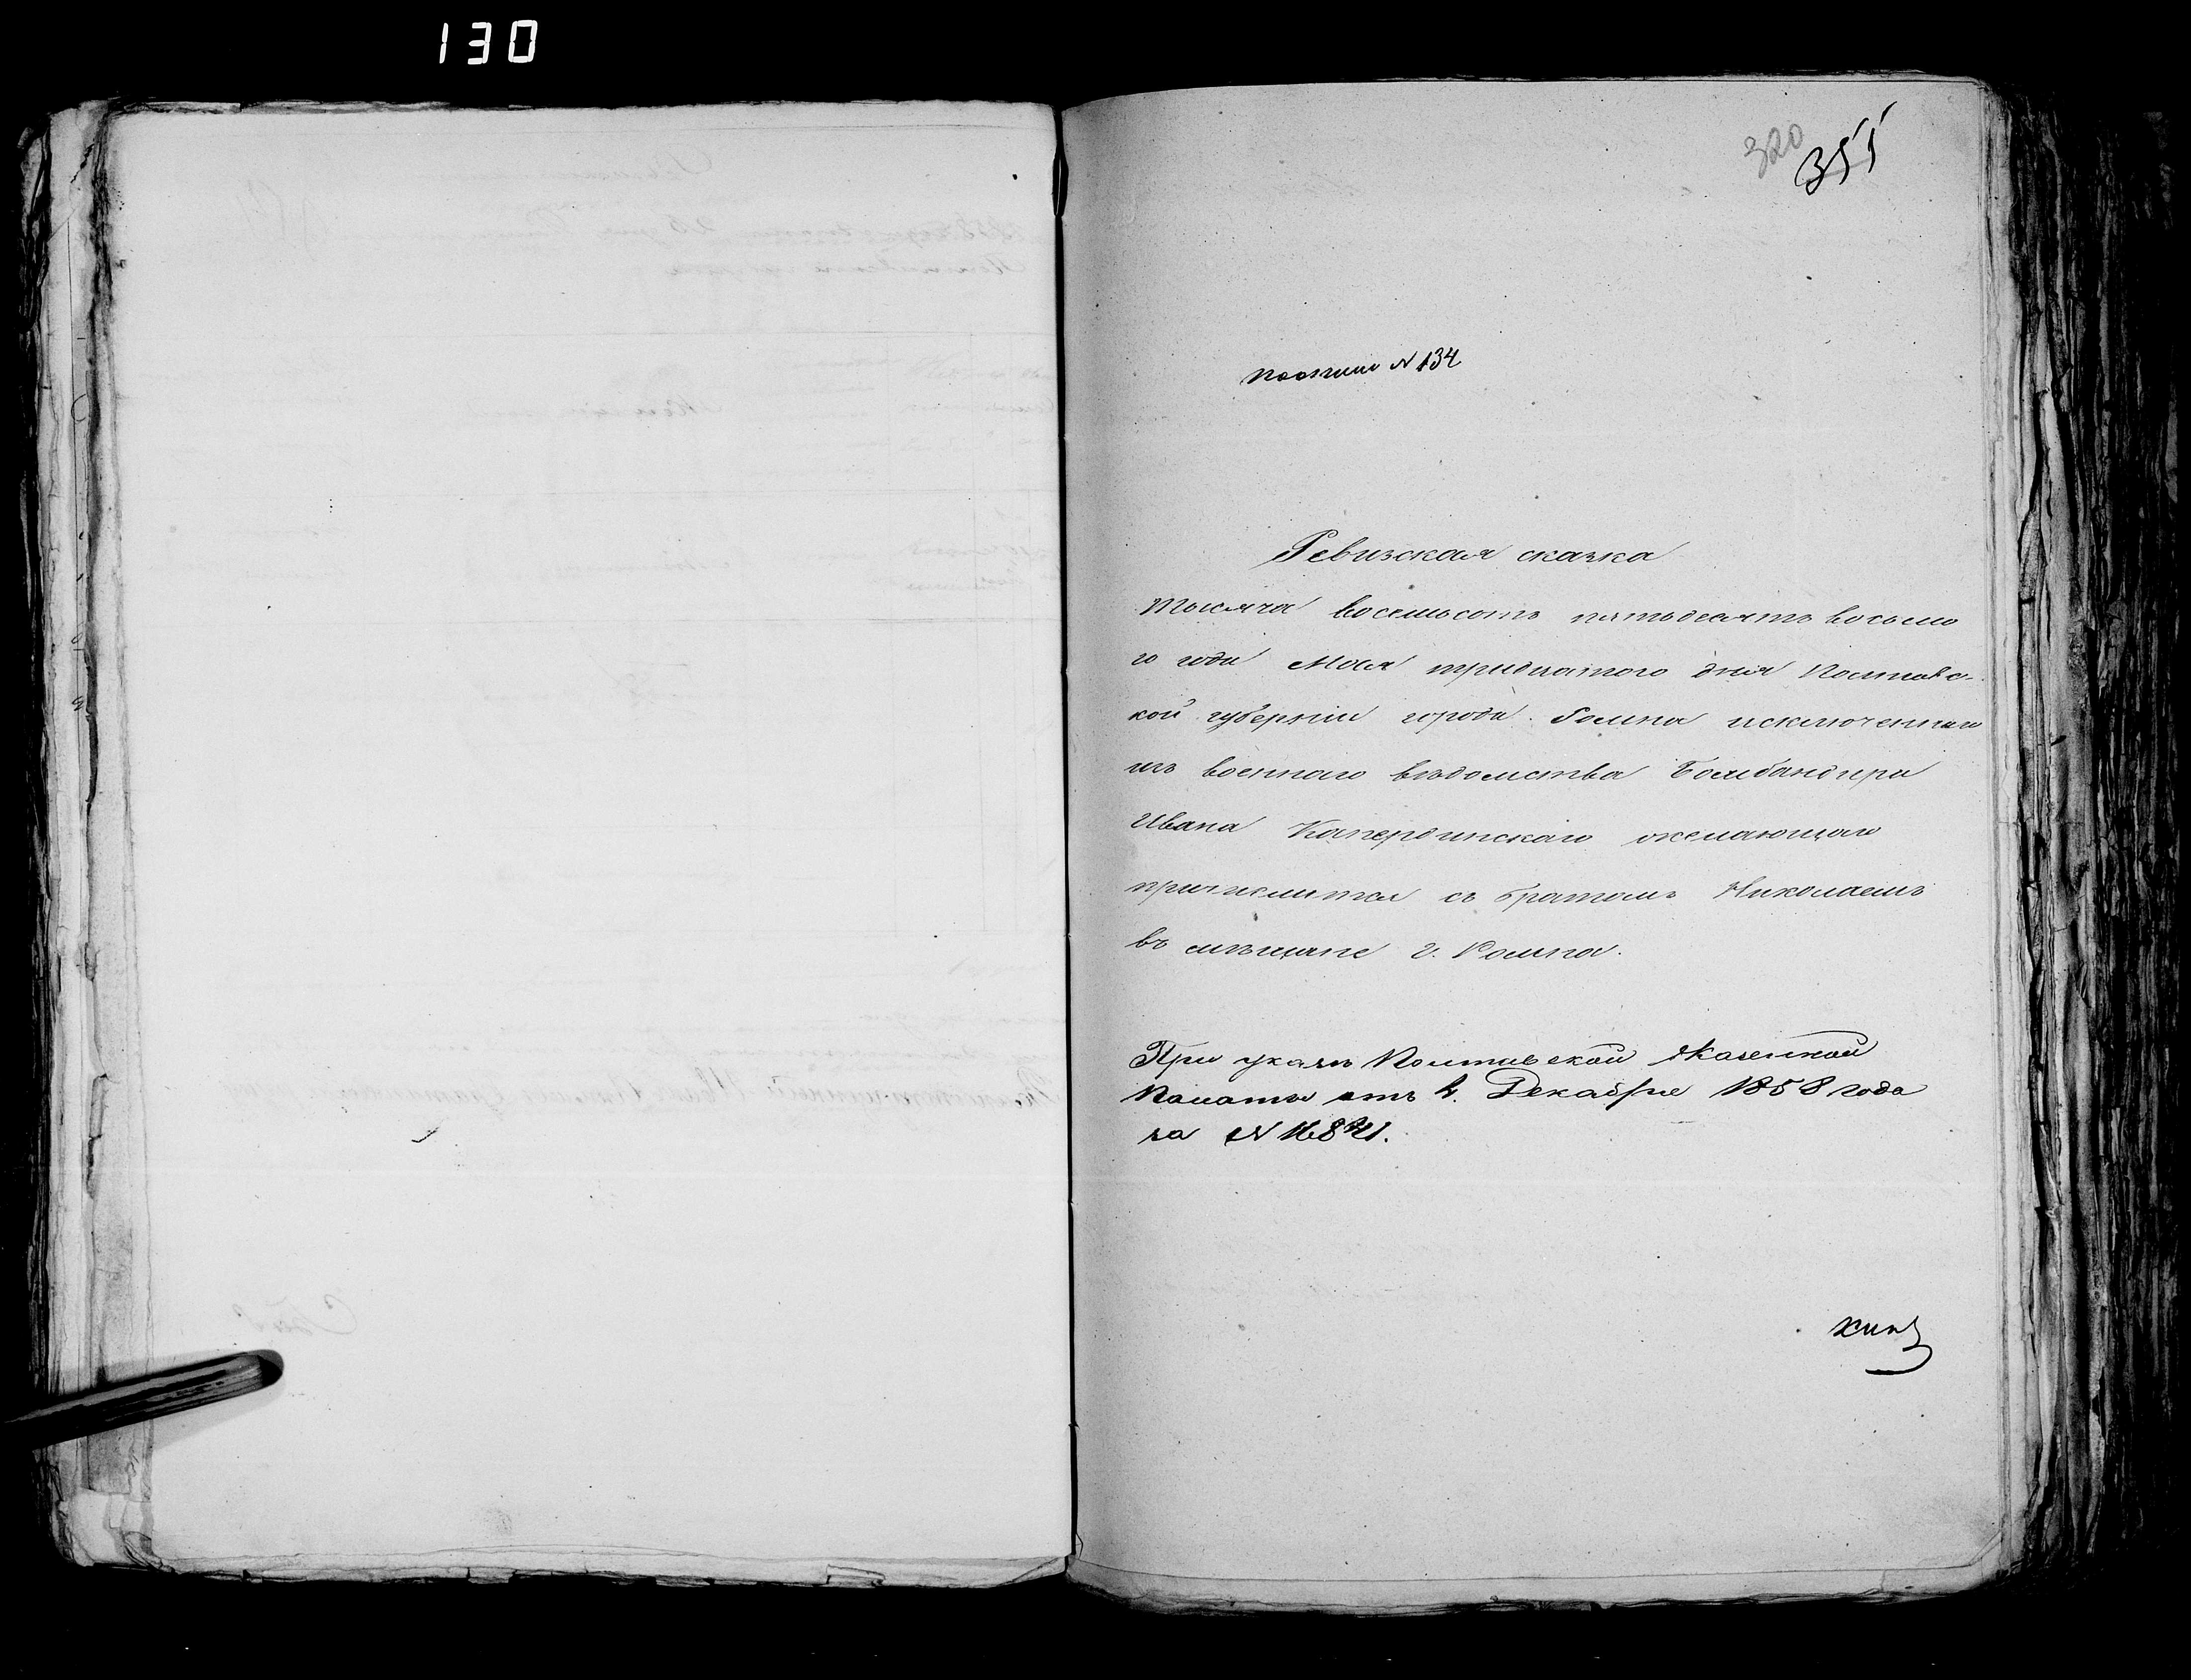 130
320
355
по описи N 134
Ревизская сказка
Тысяча восемьсотъ пятьдесятъ восьмо
го года Мая тридцатого дня Полтавс-
кой губерніи города Ромна исключеннаго
изъ военнаго вѣдомства Бомбандира
Ивана Капердинскаго желающаго
причислится съ братомъ Николаемъ
въ мѣщане г. Ромна.
При указѣ Полтавской Казенной
Палаты отъ 2. Декабря 1858 года
за N 16821.